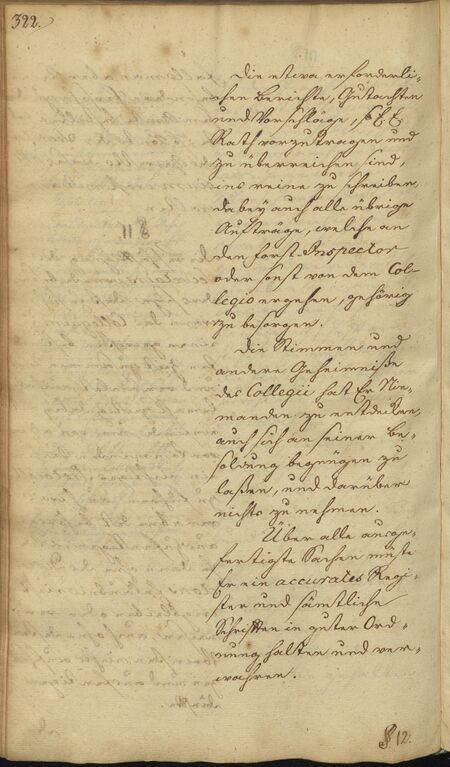 322.
Die etwa erforderli-
chen Berichte, Gutachten
und Vorschläge, so E. E.
Rath vorzutragen und
zu überreichen sind,
ins reine zu schreiben,
dabey auch alle übrige
Aufträge, welche an
den Forst-Inspector
oder sonst von dem Col-
legio ergehen, gehörig
zu besorgen.
Die Stimmen und
andere Geheimniße
des Collegii hat Er Nie-
manden zu entdecken,
auch sich an seiner Be-
soldung begnügen zu
laßen, und darüber
nichts zu nehmen.
Über alle ausge-
fertigte Sachen müste
Er ein accurates Regi-
ster und sämtliche
Schriften in guter Ord-
nung halten und ver-
wahren.
§ 12.